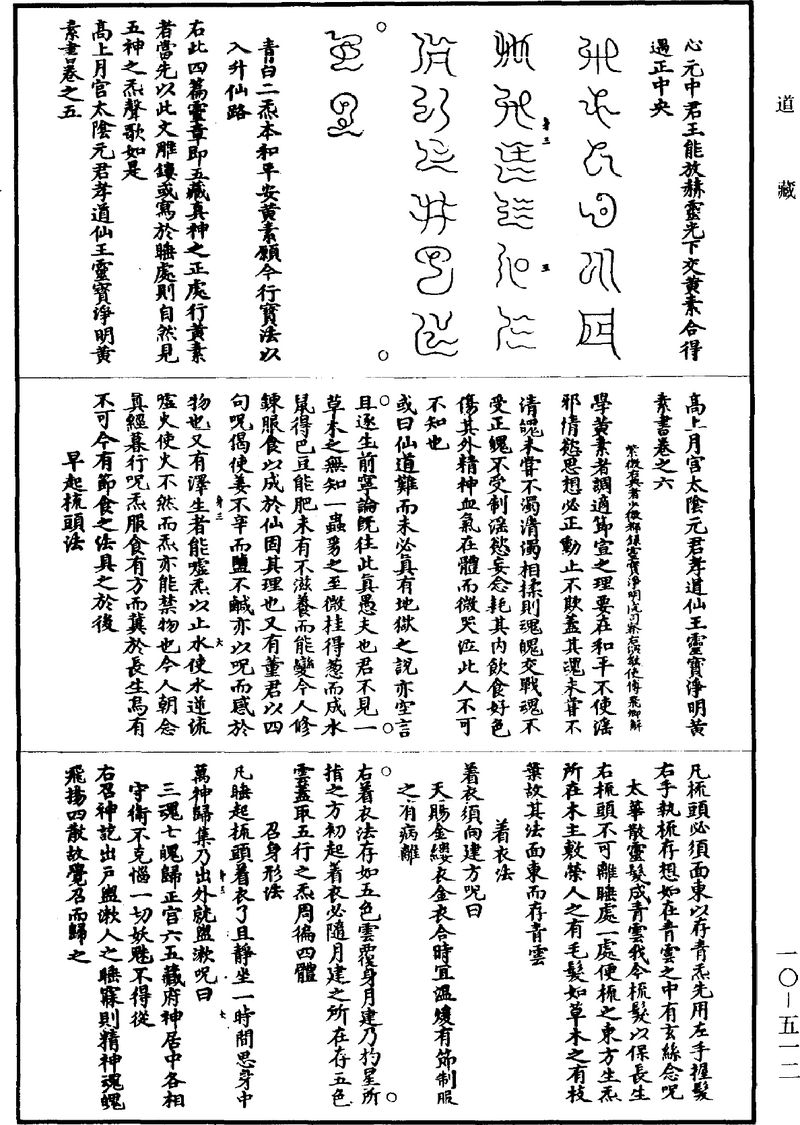 道藏
心元中君王能放赫靈光下交黃素合得
遇正中央
青白二炁本和平安黃素願今行寶法以
入升仙路
右此四篇靈章即五藏真神之正處行黃素
者當先以此文雕鏤或寫於睡處則自然見
五神之炁聲歌如是
高上月宮太陰元君孝道仙王靈寶淨明黃
素書卷之五
高上月宮太陰元君孝道仙王靈寶淨明黃
素書卷之六
學黃素者調適節宣之理要在和平不使淫
邪情慾思想必正動止不欺蓋其魂未嘗不
清魄未嘗不濁清濁相揉則魂魄交戰魂不
受正魄不受制淫慾妄念耗其內飲食好色
傷其外精神血氣在體而微哭泣此人不可
不知也
或曰仙道難而未必真有地獄之說亦空言
且逐生前寧論既往此真愚夫也君不見一
草木之無知一蟲豸之至微桂得葱而成水
鼠得巴豆能肥未有不滋養而能變今人修
鍊服食以成於仙固其理也又有董君以四
句呪偈使姜不辛而鹽不鹹亦以呪而感於
物也又有澤生者能噓炁以止水使水逆流
噓火使火不然而炁亦能禁物也今人朝念
真經暮行呪炁服食有方而冀於長生焉有
不可今有節食之法具之於後
早起梳頭法
凡梳頭必須面東以存青炁先用左手握髮
右手執梳存想如在青雲之中有玄絲念呪
太華散靈髮成青雲我今梳髮以保長生
右梳頭不可離睡處一處便梳之東方生炁
所在木主敷榮人之有毛髮如草木之有枝
葉故其法面東而存青雲
着衣法
着衣須向建方呪曰
天賜金縷衣金衣合時宜溫煖有節制服
之有病離
右着衣法存如五色雲覆身月建乃杓星所
指之方初起着衣必隨月建之所在存五色
雲蓋取五行之炁周徧四體
召身形法
凡睡起梳頭着衣了且靜坐一時間思身中
萬神歸集乃出外就盥漱呪曰
三魂七魄歸正宮六五藏府神居中各相
守衛不克惱一切妖魅不得從
右召神訖出戶盥漱人之睡寐則精神魂魄
飛揚四散故覺召而歸之
一〇－五一二